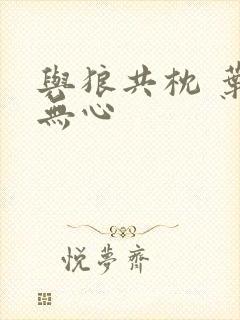 與狼共枕 葉
無心
悅夢齋